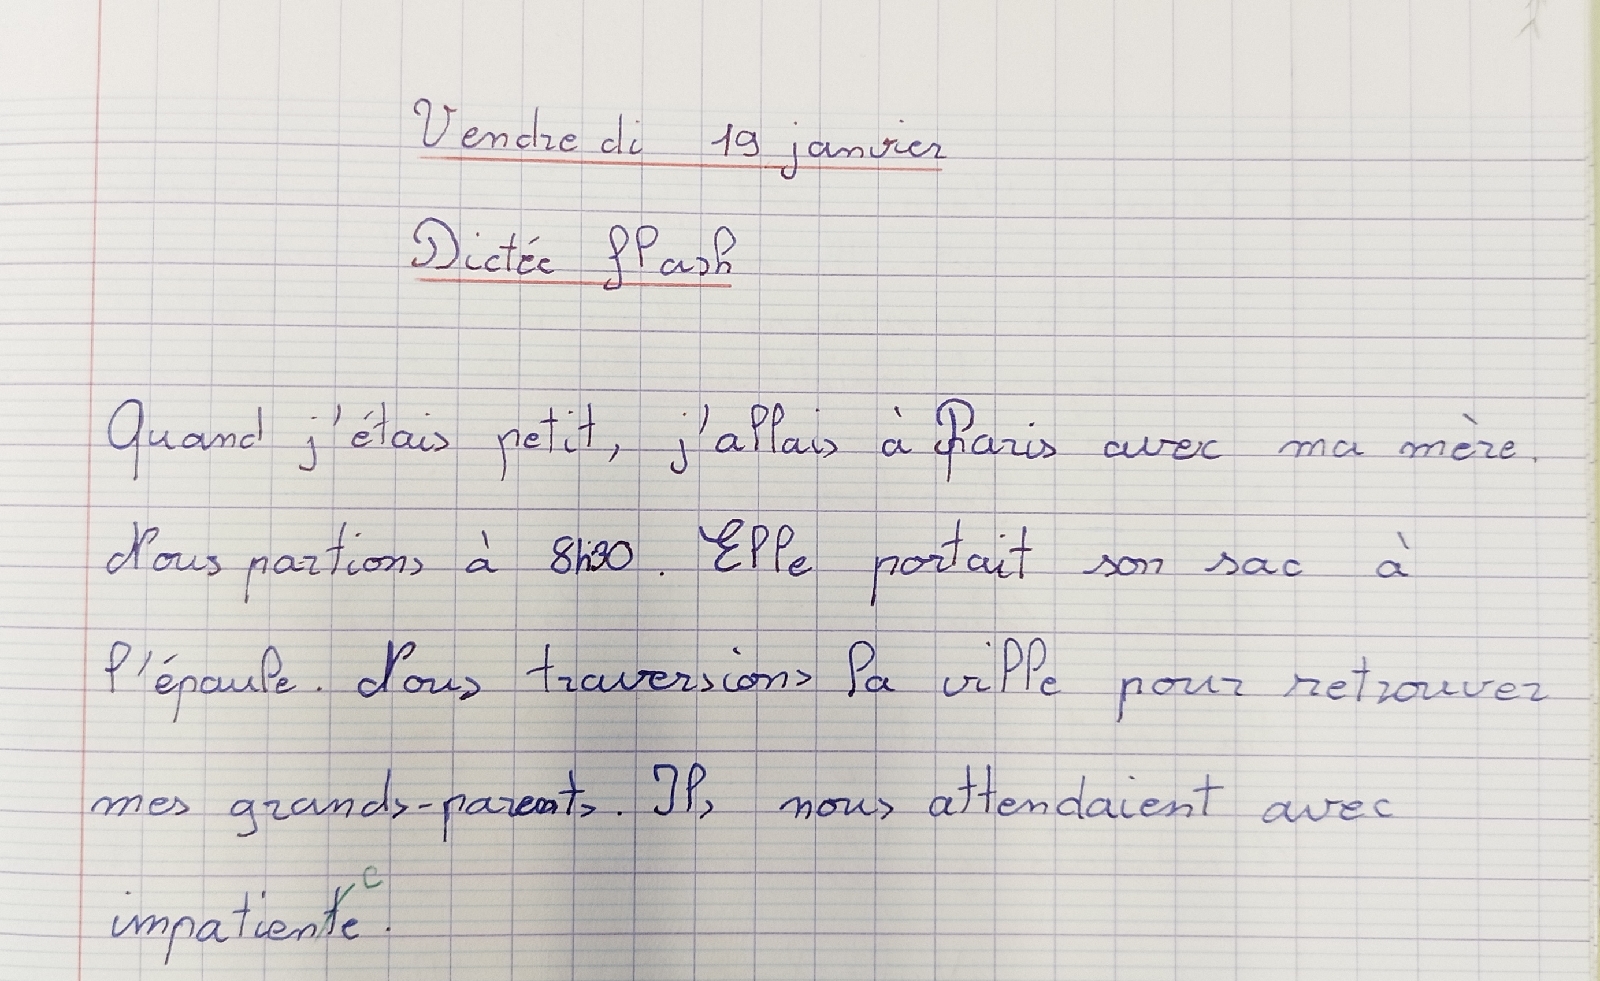 Vendredi 19 janvier
Dictée flash
Quand j'étais petit, j'allais à Paris avec ma mère.
Nous partions à 8h30. Elle portait son sac à
l'épaule. Nous traversions la ville pour retrouver
mes grands-parents. Ils nous attendaient avec
c
impatiente.